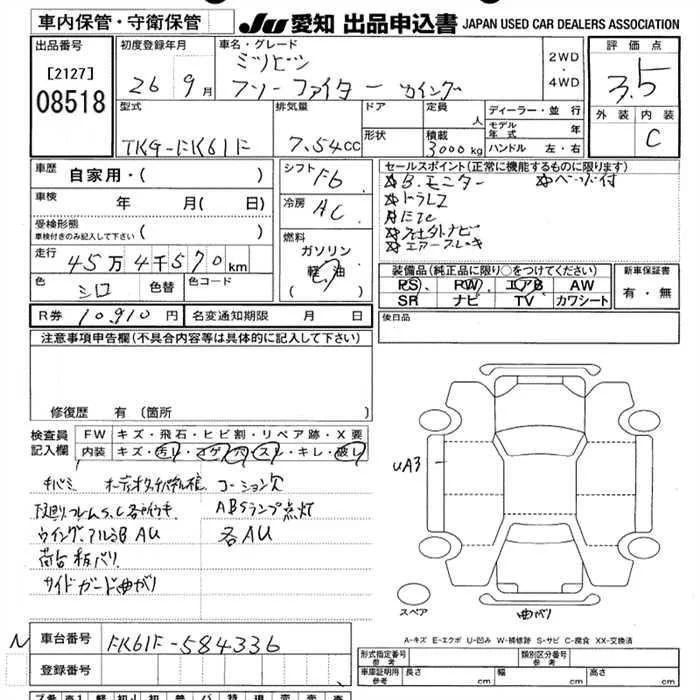 車内保管・守衛保管
JU 愛知 出品申込書 JAPAN USED CAR DEALERS ASSOCIATION
出品番号
[2127]
08518
初度登録年月
26 9月
車名・グレード
ミツビシ
フソー ファイター ウイング
2WD
・
4WD
評価点
3.5
外装 内装
C
型式
TKG-FK61F
排気量
7.54cc
ドア
形状
定員
人
積載
3000kg
ディーラー・並行
モデル年式 年
ハンドル 左・右
車歴
自家用・( )
車検
年 月( 日)
受検形態
車検付きのみ記入して下さい ( )
走行
45万4千570km
色
シロ
色替
色コード
シフト
F6
冷房
AC
燃料
ガソリン
軽油
( )
セールスポイント(正常に機能するものに限ります)
B.モニター
ベッド付
トラクス
ETC
社外ナビ
エアーブレーキ
装備品(純正品に限り○をつけてください)
PS PW エアB AW
SR ナビ TV カワシート
新車保証書
有・無
R券 10,910円
名変通知期限 月 日
後日品
注意事項申告欄(不具合内容等は具体的に記入して下さい)
修復歴 有(箇所 )
検査員記入欄
FW キズ・飛石・ヒビ割・リペア跡・X要
内装 キズ・汚れ・コゲ・穴・スレ・キレ・破レ
コーション欠
ABSランプ点灯
ウイングアルミB AU
各AU
荷台板バリ
サイドガード曲がり
UA3
スペア
曲がり
A-キズ E-エクボ U-凹み W-補修跡 S-サビ C-腐食 XX-交換済
N
車台番号
FK61F-584336
登録番号
形式指定番号
参考
類別区分番号
参考
車庫証明用
参考
長さ cm
幅 cm
高さ cm